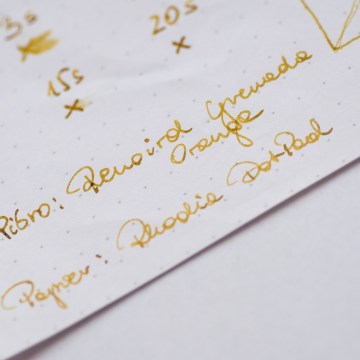 20s
15s
Pióro: Grenada
Orange
Papier: Rhodia DotPad